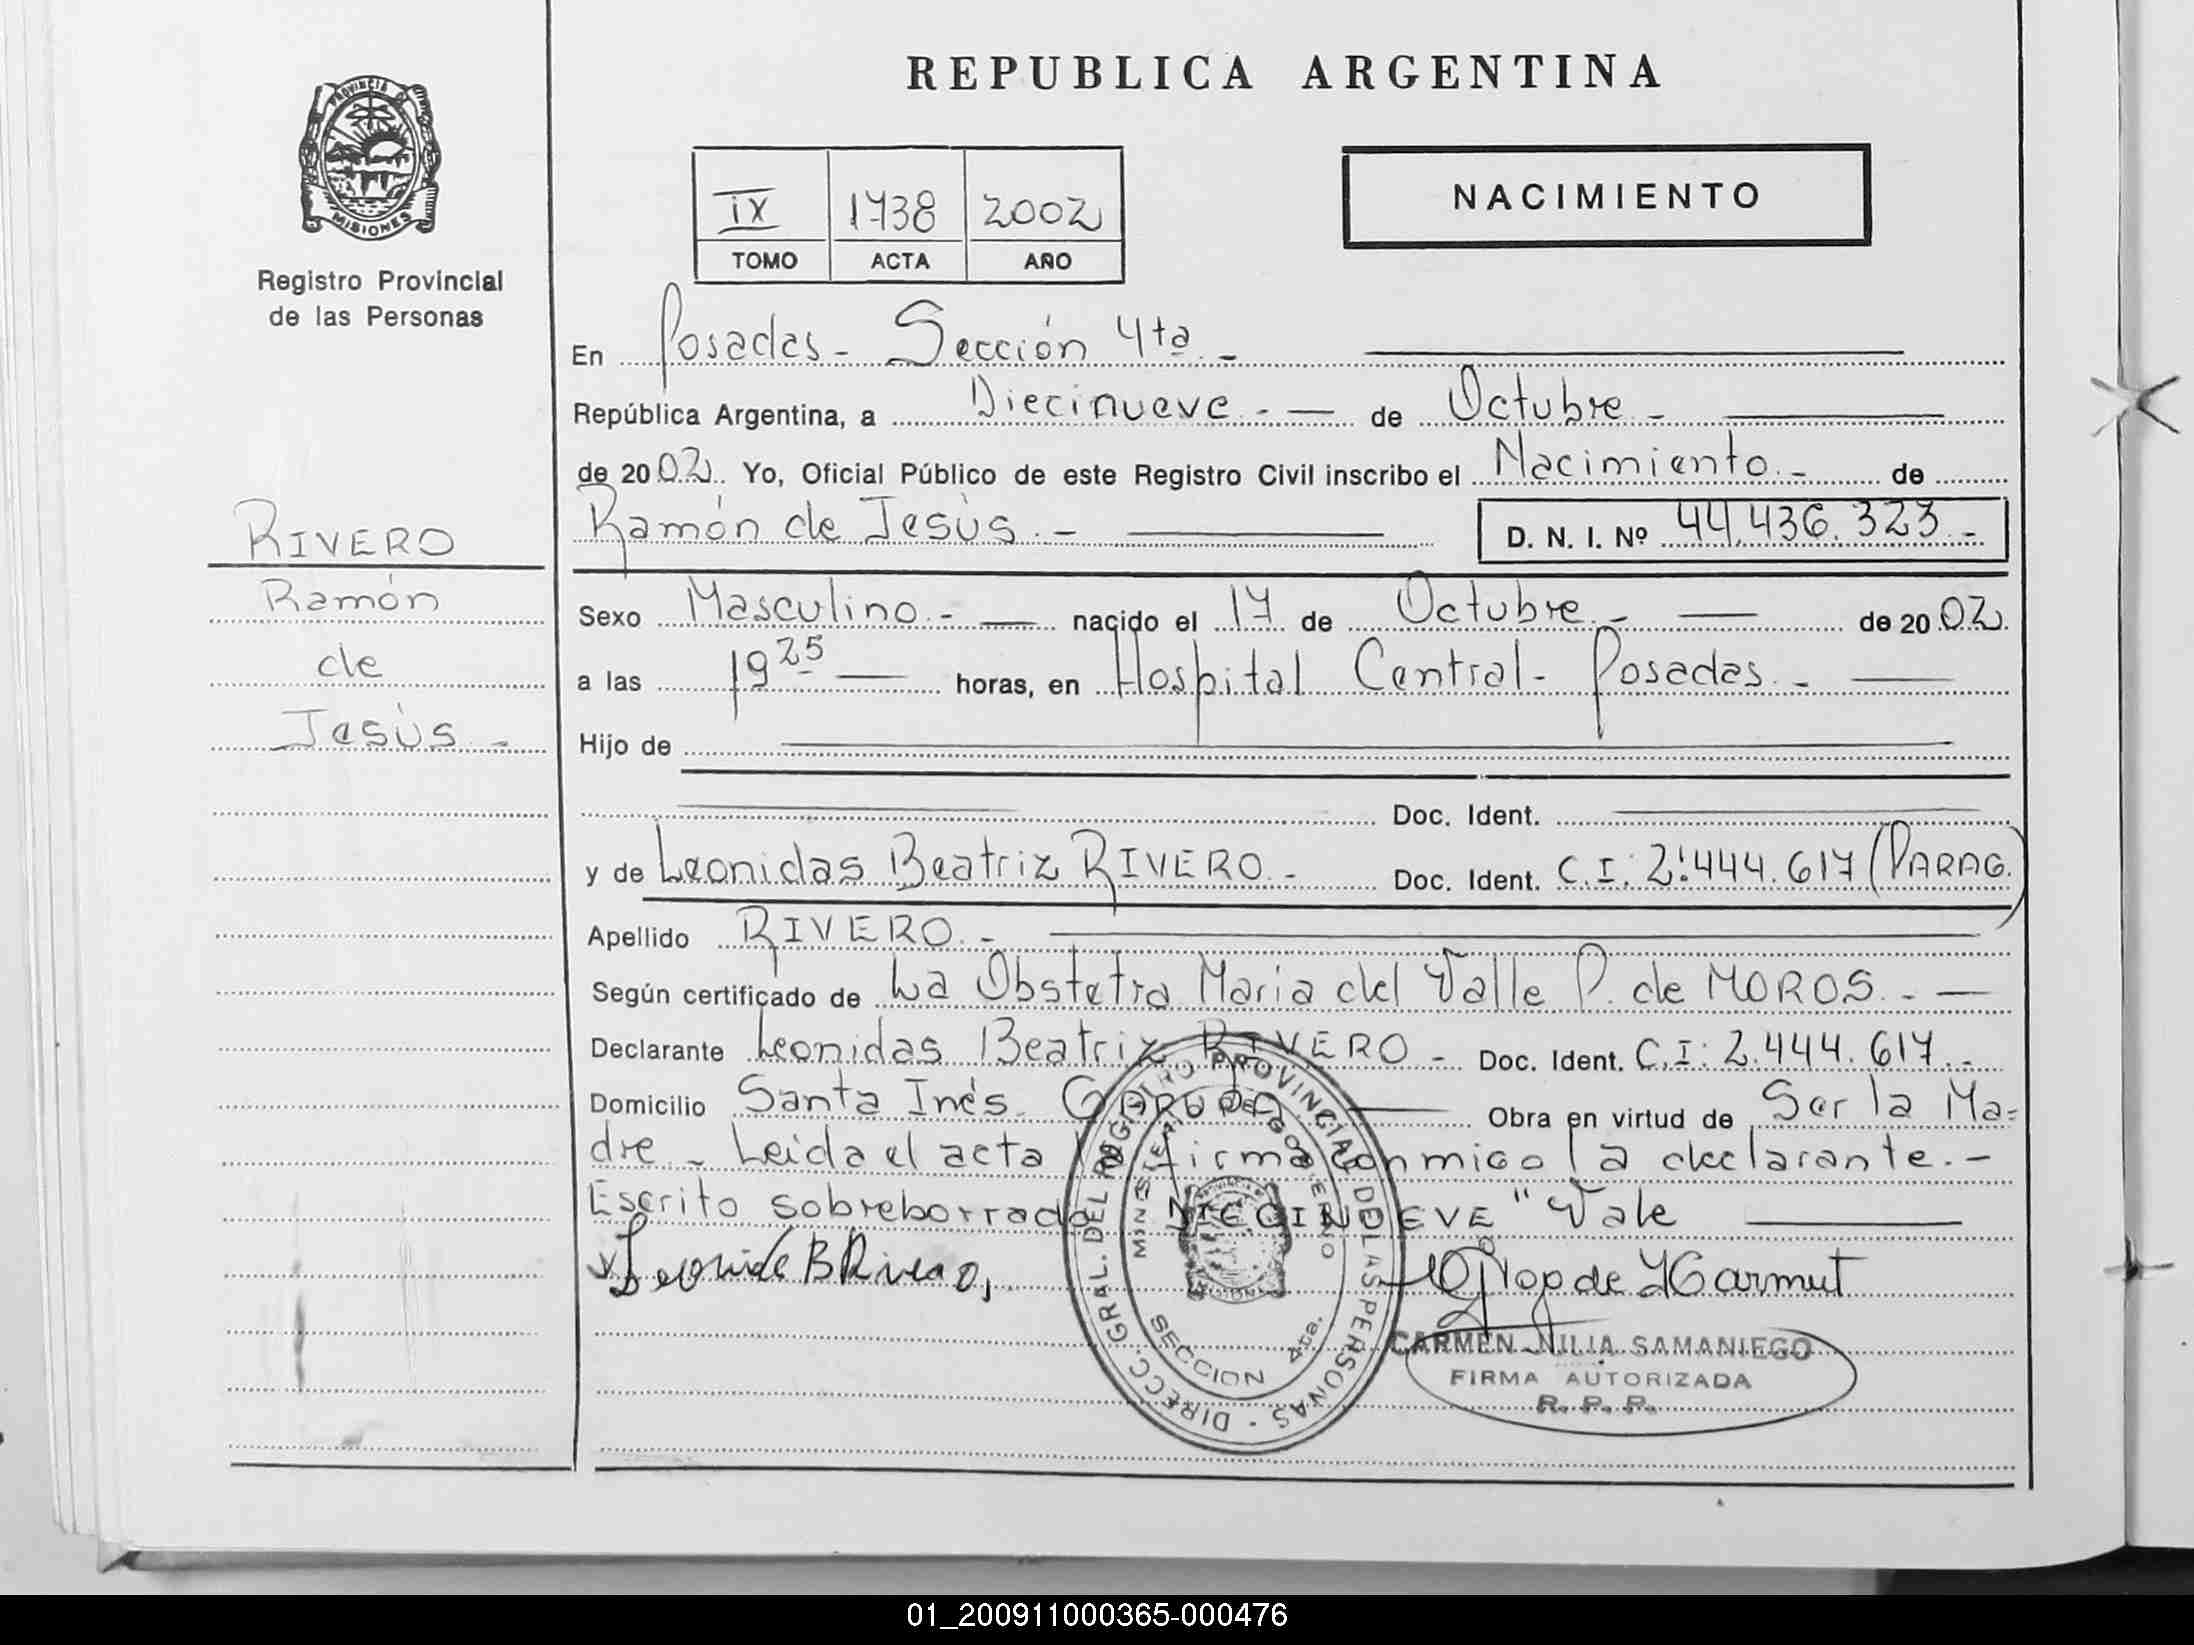 REPUBLICA ARGENTINA
PROVINCIA DE
MISIONES
Registro Provincial
de las Personas
IX 1738 2002
TOMO ACTA AÑO
NACIMIENTO
En Posadas - Sección 4ta. -
República Argentina, a Diecinueve. - de Octubre -
de 2002. Yo, Oficial Público de este Registro Civil inscribo el Nacimiento. - de
Ramón de Jesús. - D. N. I. Nº 44.436.323 -
RIVERO
Ramón
de
Jesús. -
Sexo Masculino. - nacido el 17 de Octubre. - de 2002.
a las 19 25 horas, en Hospital Central - Posadas. -
Hijo de
Doc. Ident.
y de Leonidas Beatriz RIVERO. - Doc. Ident. C.I: 2.444.617 (PARAG.)
Apellido RIVERO. -
Según certificado de La Obstetra Maria del Valle P. de MOROS. -
Declarante Leonidas Beatriz RIVERO - Doc. Ident. C.I: 2.444.617. -
Domicilio Santa Inés - GARUPA. Obra en virtud de Ser la Ma=
dre - Leida el acta la firma conmigo la declarante. -
Escrito sobreborrado "DIECINUEVE" Vale
Leonida B Rivero,
DIRECC. GRAL. DEL REGISTRO PROVINCIAL DE LAS PERSONAS -
MINISTERIO DE GOBIERNO
SECCION 4ta.
CARMEN NILIA SAMANIEGO
FIRMA AUTORIZADA
R. P. P.
01_200911000365-000476